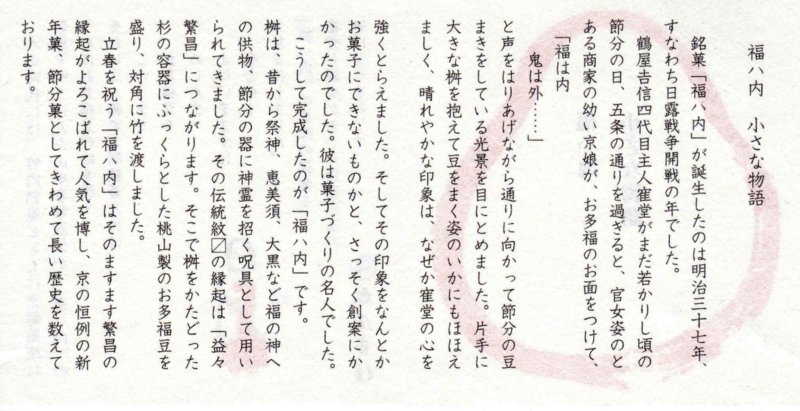 福ハ内　小さな物語
銘菓「福ハ内」が誕生したのは明治三十七年、
すなわち日露戦争開戦の年でした。
鶴屋𠮷信四代目主人寉堂がまだ若かりし頃の
節分の日、五条の通りを過ぎると、官女姿のと
ある商家の幼い京娘が、お多福のお面をつけて、
「福は内
鬼は外……」
と声をはりあげながら通りに向かって節分の豆
まきをしている光景を目にとめました。片手に
大きな桝を抱えて豆をまく姿のいかにもほほえ
ましく、晴れやかな印象は、なぜか寉堂の心を
強くとらえました。そしてその印象をなんとか
お菓子にできないものかと、さっそく創案にか
かったのでした。彼は菓子づくりの名人でした。
こうして完成したのが「福ハ内」です。
桝は、昔から祭神、恵美須、大黒など福の神へ
の供物、節分の器に神霊を招く呪具として用い
られてきました。その伝統紋〼の縁起は「益々
繁昌」につながります。そこで桝をかたどった
杉の容器にふっくらとした桃山製のお多福豆を
盛り、対角に竹を渡しました。
立春を祝う「福ハ内」はそのますます繁昌の
縁起がよろこばれて人気を博し、京の恒例の新
年菓、節分菓としてきわめて長い歴史を数えて
おります。